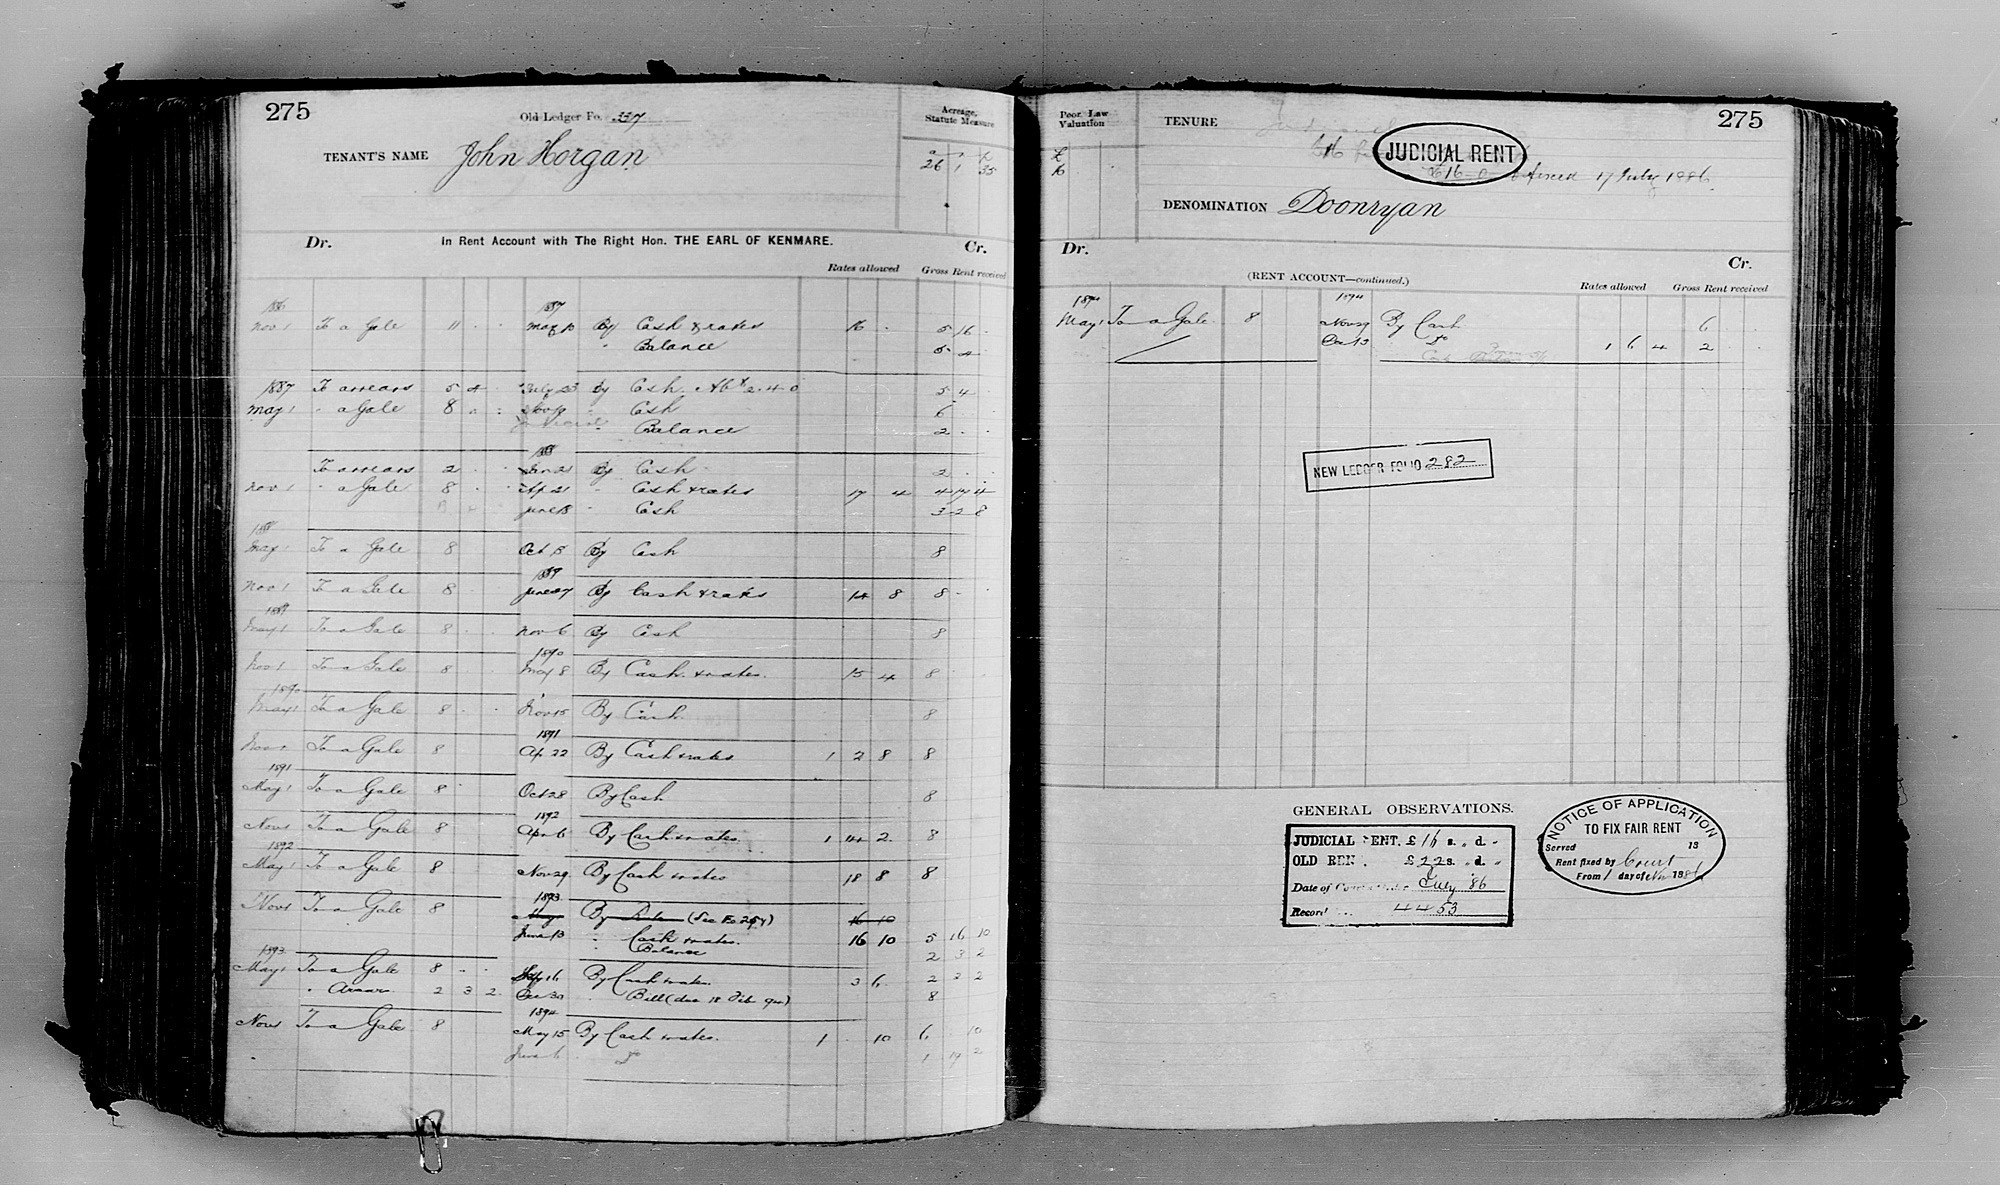 275
Old Ledger Fo. 237
Acreage, Statute Measure
TENANT'S NAME John Horgan
a r p
26 1 35
Dr. In Rent Account with The Right Hon. THE EARL OF KENMARE. Cr.
Rates allowed Gross Rent received
1886 1887
Nov 1 To a Gale 11 . . May 10 By Cash & rates 16 . 5 16 .
" Balance 5 4
1887 To arrears 5 4 July 23 By Cash 2.4.0 5 4
May 1 " a Gale 8 " Cash 6
" Balance 2 . .
1888
To arrears 2 . . Jan 21 By Cash 2 . .
Nov 1 " a Gale 8 . . Ap 21 " Cash & rates 17 4 4 17 4
June 13 " Cash 3 2 8
1888
May 1 To a Gale 8 Oct 15 By Cash 8
1889
Nov 1 To a Gale 8 June 27 By Cash & rates 14 8 8
1889
May 1 To a Gale 8 Nov 6 By Cash 8
1890
Nov 1 To a Gale 8 May 8 By Cash & rates. 15 4 8
1890
May 1 To a Gale 8 Nov 15 By Cash 8
1891
Nov 1 To a Gale 8 Ap 22 By Cash & rates 1 2 8 8
1891
May 1 To a Gale 8 Oct 28 By Cash 8
1892
Nov 1 To a Gale 8 Apr 6 By Cash & rates. 1 14 2 8
1892
May 1 To a Gale 8 Nov 29 By Cash & rates 18 8 8
1893
Nov 1 To a Gale 8 May By Rates (See Fo 254) 16 10
June 13 " Cash & rates. 16 10 5 16 10
" Balance 2 3 2
1893
May 1 To a Gale 8 . . Sep 16 By Cash & rates. 3 6 2 3 2
" Arrear 2 3 2 Dec 30 " Bill (due 18 Feb 94) 8
1894
Nov 1 To a Gale 8 May 15 By Cash & rates. 1 . 10 6 . 10
June 6 " Do 1 19 2
Poor Law Valuation
TENURE
275
£
16
JUDICIAL RENT
£16 17 July 1886.
DENOMINATION Doonryan
Dr. Cr.
(RENT ACCOUNT—continued.)
Rates allowed Gross Rent received
1894 1894
May 1 To a Gale 8 Nov 29 By Cash 6
Dec 13 Do 1 6 4 2
NEW LEDGER FOLIO 282
GENERAL OBSERVATIONS.
JUDICIAL RENT. £16 s. " d. "
OLD RENT. £22 s. " d. "
Date of July '86
Record 4453
NOTICE OF APPLICATION
TO FIX FAIR RENT
Served 18
Rent fixed by Court
From 1 day of Nov 1886